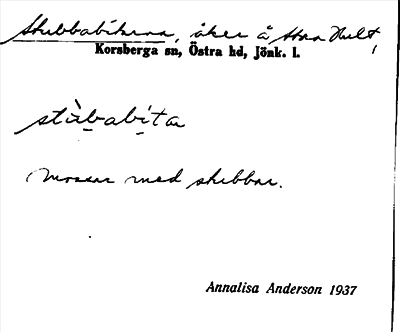 Stubbabitarna, åker å Stora Hult,
Korsberga sn, Östra hd, Jönk. l.
stùbabíta
Mossar med stubbar.
Annalisa Anderson 1937